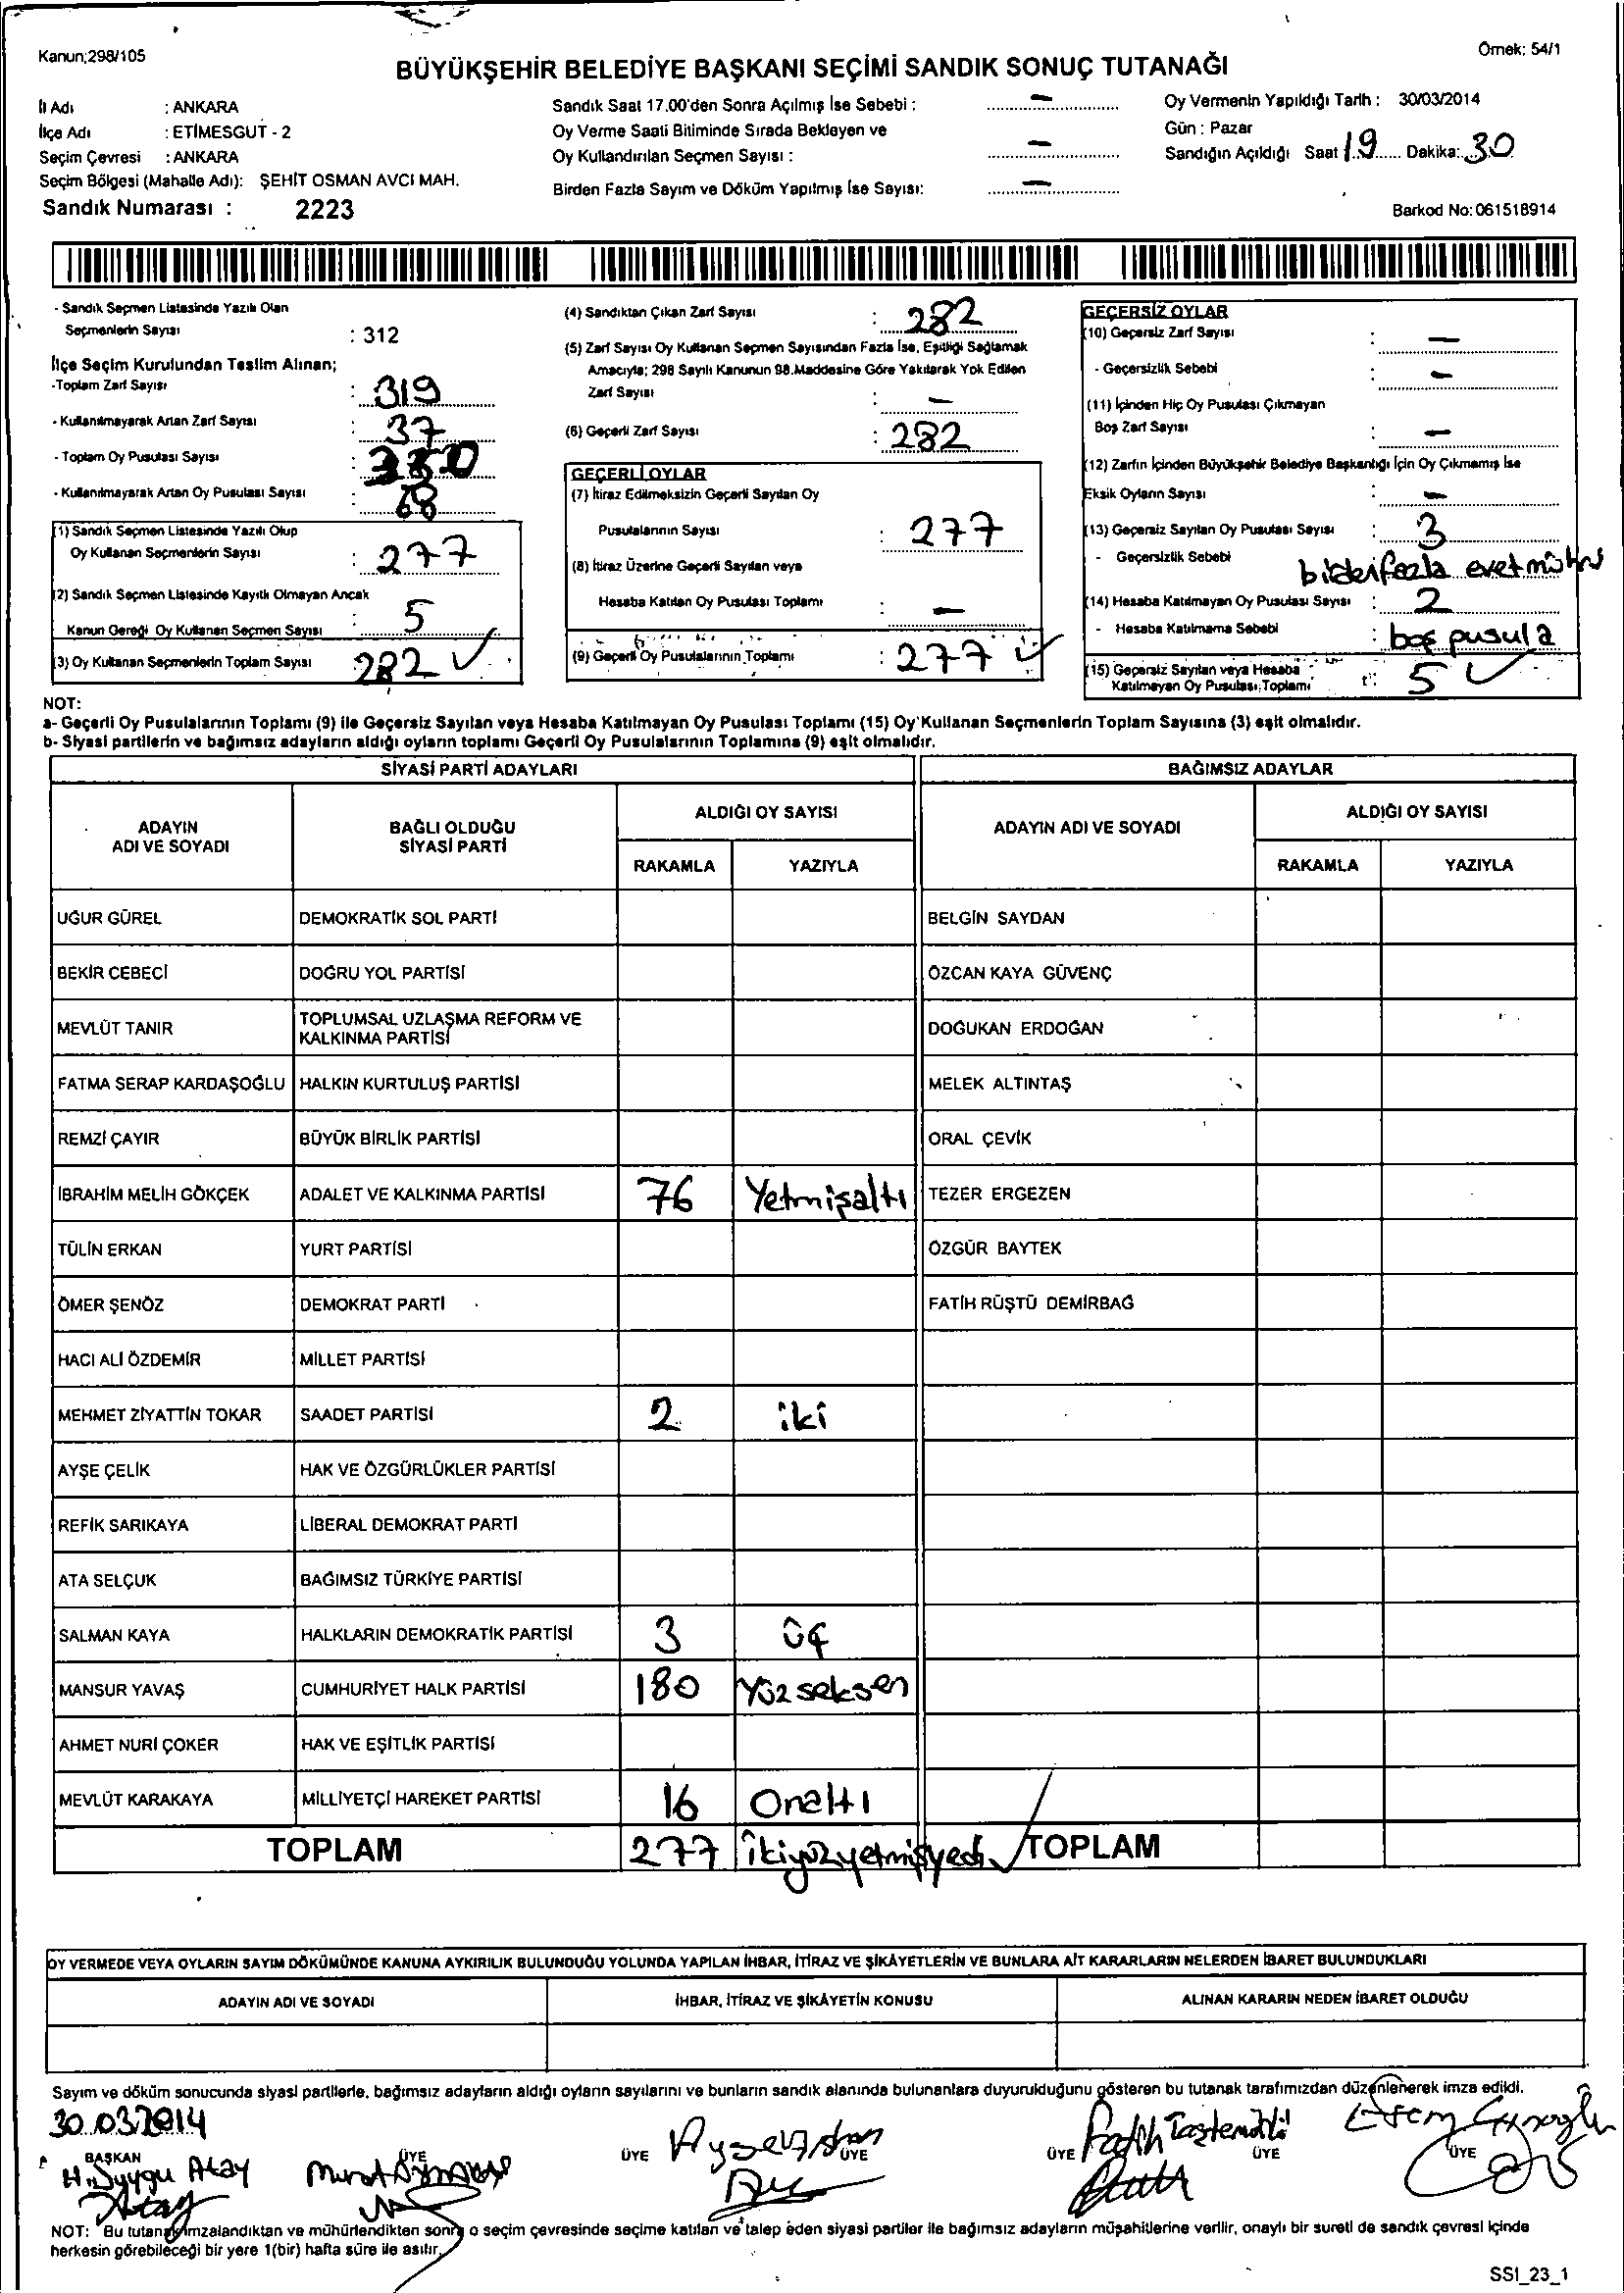 Kanun;298/105
Örnek: 54/1
BÜYÜKŞEHİR BELEDİYE BAŞKANI SEÇİMİ SANDIK SONUÇ TUTANAĞI
İl Adı : ANKARA
İlçe Adı : ETİMESGUT - 2
Seçim Çevresi : ANKARA
Seçim Bölgesi (Mahalle Adı): ŞEHİT OSMAN AVCI MAH.
Sandık Numarası : 2223
Sandık Saat 17.00'den Sonra Açılmış İse Sebebi : –
Oy Verme Saati Bitiminde Sırada Bekleyen ve
Oy Kullandırılan Seçmen Sayısı : –
Birden Fazla Sayım ve Döküm Yapılmış İse Sayısı: –
Oy Vermenin Yapıldığı Tarih : 30/03/2014
Gün : Pazar
Sandığın Açıldığı Saat 19 Dakika: 30
Barkod No: 061518914
- Sandık Seçmen Listesinde Yazılı Olan
Seçmenlerin Sayısı : 312
İlçe Seçim Kurulundan Teslim Alınan;
-Toplam Zarf Sayısı : 319
- Kullanılmayarak Artan Zarf Sayısı : 37
- Toplam Oy Pusulası Sayısı :
- Kullanılmayarak Artan Oy Pusulası Sayısı : 68
(1) Sandık Seçmen Listesinde Yazılı Olup
Oy Kullanan Seçmenlerin Sayısı : 277
(2) Sandık Seçmen Listesinde Kayıtlı Olmayan Ancak
Kanun Gereği Oy Kullanan Seçmen Sayısı : 5
(3) Oy Kullanan Seçmenlerin Toplam Sayısı 282 ✓
(4) Sandıktan Çıkan Zarf Sayısı : 282
(5) Zarf Sayısı Oy Kullanan Seçmen Sayısından Fazla İse, Eşitliği Sağlamak
Amacıyla; 298 Sayılı Kanunun 98.Maddesine Göre Yakılarak Yok Edilen
Zarf Sayısı : –
(6) Geçerli Zarf Sayısı : 282
GEÇERLİ OYLAR
(7) İtiraz Edilmeksizin Geçerli Sayılan Oy
Pusulalarının Sayısı : 277
(8) İtiraz Üzerine Geçerli Sayılan veya
Hesaba Katılan Oy Pusulası Toplamı : –
(9) Geçerli Oy Pusulalarının Toplamı : 277 ✓
GEÇERSİZ OYLAR
(10) Geçersiz Zarf Sayısı : –
- Geçersizlik Sebebi : –
(11) İçinden Hiç Oy Pusulası Çıkmayan
Boş Zarf Sayısı : –
(12) Zarfın İçinden Büyükşehir Belediye Başkanlığı İçin Oy Çıkmamış İse
Eksik Oyların Sayısı : –
(13) Geçersiz Sayılan Oy Pusulası Sayısı : 3
- Geçersizlik Sebebi birden fazla evet mührü
(14) Hesaba Katılmayan Oy Pusulası Sayısı : 2
- Hesaba Katılmama Sebebi : boş pusula
(15) Geçersiz Sayılan veya Hesaba
Katılmayan Oy Pusulası Toplamı : 5 ✓
NOT:
a- Geçerli Oy Pusulalarının Toplamı (9) ile Geçersiz Sayılan veya Hesaba Katılmayan Oy Pusulası Toplamı (15) Oy Kullanan Seçmenlerin Toplam Sayısına (3) eşit olmalıdır.
b- Siyasi partilerin ve bağımsız adayların aldığı oyların toplamı Geçerli Oy Pusulalarının Toplamına (9) eşit olmalıdır.
SİYASİ PARTİ ADAYLARI
BAĞIMSIZ ADAYLAR
ADAYIN ADI VE SOYADI
BAĞLI OLDUĞU SİYASİ PARTİ
ALDIĞI OY SAYISI
RAKAMLA YAZIYLA
ADAYIN ADI VE SOYADI
ALDIĞI OY SAYISI
RAKAMLA YAZIYLA
UĞUR GÜREL DEMOKRATİK SOL PARTİ BELGİN SAYDAN
BEKİR CEBECİ DOĞRU YOL PARTİSİ ÖZCAN KAYA GÜVENÇ
MEVLÜT TANIR TOPLUMSAL UZLAŞMA REFORM VE KALKINMA PARTİSİ DOĞUKAN ERDOĞAN
FATMA SERAP KARDAŞOĞLU HALKIN KURTULUŞ PARTİSİ MELEK ALTINTAŞ
REMZİ ÇAYIR BÜYÜK BİRLİK PARTİSİ ORAL ÇEVİK
İBRAHİM MELİH GÖKÇEK ADALET VE KALKINMA PARTİSİ 76 Yetmişaltı TEZER ERGEZEN
TÜLİN ERKAN YURT PARTİSİ ÖZGÜR BAYTEK
ÖMER ŞENÖZ DEMOKRAT PARTİ FATİH RÜŞTÜ DEMİRBAĞ
HACI ALİ ÖZDEMİR MİLLET PARTİSİ
MEHMET ZİYATTİN TOKAR SAADET PARTİSİ 2 iki
AYŞE ÇELİK HAK VE ÖZGÜRLÜKLER PARTİSİ
REFİK SARIKAYA LİBERAL DEMOKRAT PARTİ
ATA SELÇUK BAĞIMSIZ TÜRKİYE PARTİSİ
SALMAN KAYA HALKLARIN DEMOKRATİK PARTİSİ 3 üç
MANSUR YAVAŞ CUMHURİYET HALK PARTİSİ 180 Yüzseksen
AHMET NURİ ÇOKER HAK VE EŞİTLİK PARTİSİ
MEVLÜT KARAKAYA MİLLİYETÇİ HAREKET PARTİSİ 16 Onaltı
TOPLAM 277 ikiyüzyetmişyedi TOPLAM
OY VERMEDE VEYA OYLARIN SAYIM DÖKÜMÜNDE KANUNA AYKIRILIK BULUNDUĞU YOLUNDA YAPILAN İHBAR, İTİRAZ VE ŞİKÂYETLERİN VE BUNLARA AİT KARARLARIN NELERDEN İBARET BULUNDUKLARI
ADAYIN ADI VE SOYADI İHBAR, İTİRAZ VE ŞİKÂYETİN KONUSU ALINAN KARARIN NEDEN İBARET OLDUĞU
Sayım ve döküm sonucunda siyasi partilerle, bağımsız adayların aldığı oyların sayılarını ve bunların sandık alanında bulunanlara duyurulduğunu gösteren bu tutanak tarafımızdan düzenlenerek imza edildi.
30.03.2014
BAŞKAN ÜYE ÜYE ÜYE ÜYE ÜYE ÜYE
H. Duygu Atay Murat Fatih Taştemürli
NOT: Bu tutanak imzalandıktan ve mühürlendikten sonra o seçim çevresinde seçime katılan ve talep eden siyasi partiler ile bağımsız adayların müşahitlerine verilir, onaylı bir sureti de sandık çevresi içinde
herkesin görebileceği bir yere 1(bir) hafta süre ile asılır.
SSI_23_1